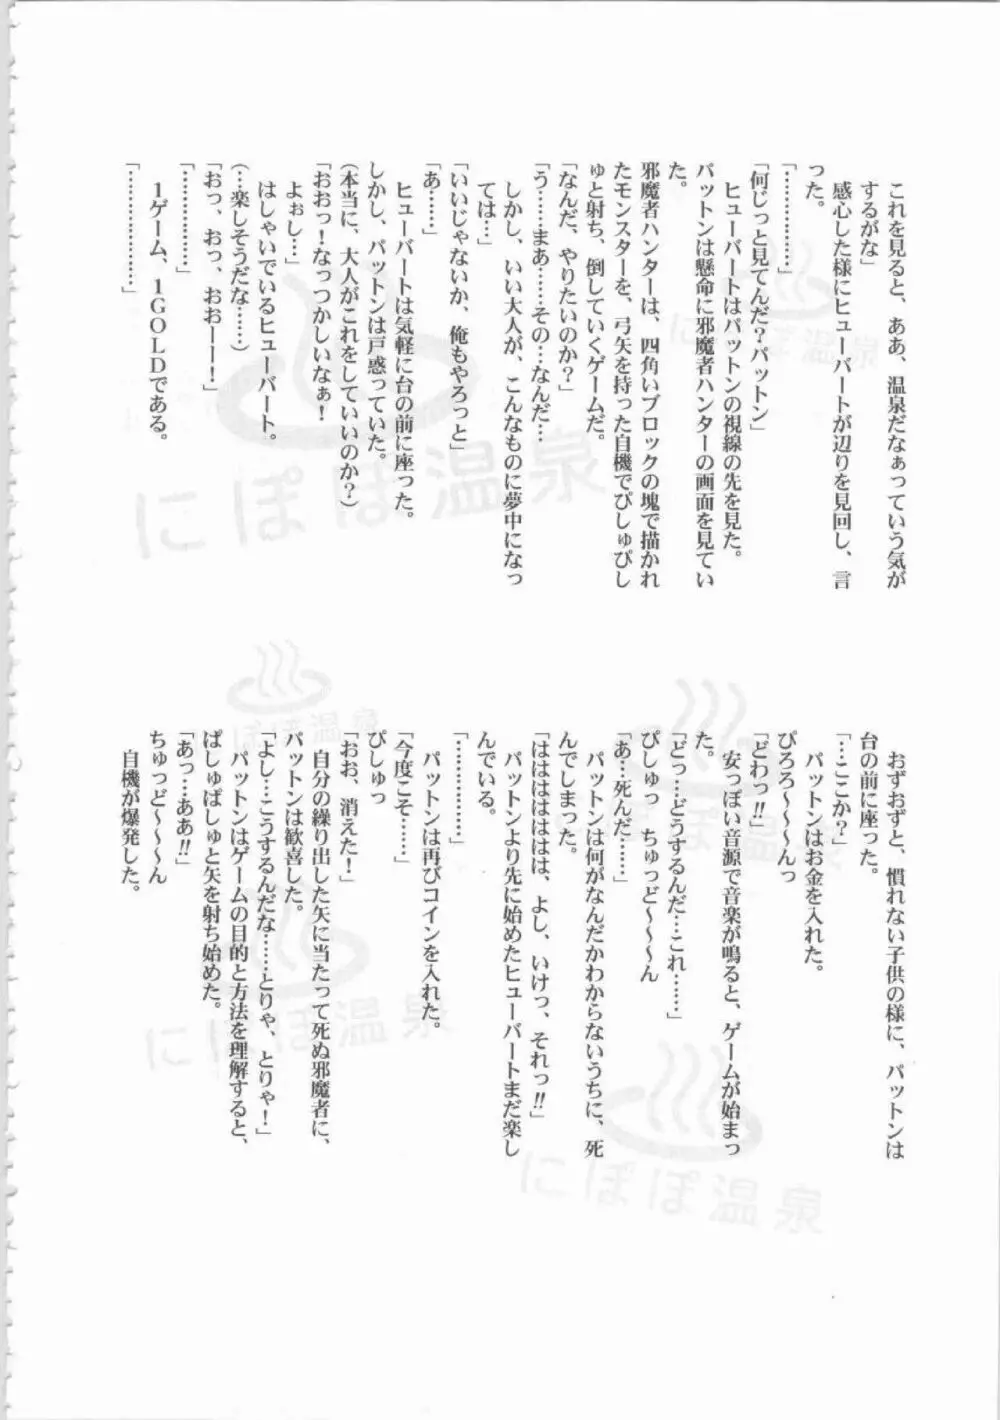 これを見ると、ああ、温泉だなぁっていう気が
するがな」
　感心した様にヒューバートが辺りを見回し、言
った。
「……………」
「何じっと見てんだ？パットン」
　ヒューバートはパットンの視線の先を見た。
パットンは懸命に邪魔者ハンターの画面を見てい
た。
邪魔者ハンターは、四角いブロックの塊で描かれ
たモンスターを、弓矢を持った自機でぴしゅぴし
ゅと射ち、倒していくゲームだ。
「なんだ、やりたいのか？」
「う……まあ……その…なんだ…
　しかし、いい大人が、こんなものに夢中になっ
ては…」
「いいじゃないか、俺もやろっと」
「あ……」
　ヒューバートは気軽に台の前に座った。
しかし、パットンは戸惑っていた。
（本当に、大人がこれをしていいのか？）
「おおっ！なっつかしいなぁ！
　よぉし…」
　はしゃいでいるヒューバート。
（…楽しそうだな……）
「おっ、おっ、おおーー！」
「……………」
　１ゲーム、１ＧＯＬＤである。
「………………」
　おずおずと、慣れない子供の様に、パットンは
台の前に座った。
「…ここか？」
　パットンはお金を入れた。
ぴろろ～～～んっ
「どわっ!!」
　安っぽい音源で音楽が鳴ると、ゲームが始まっ
た。
「どっ…どうするんだ…これ……」
ぴしゅっ　ちゅっど～～～ん
「あ…死んだ……」
　パットンは何がなんだかわからないうちに、死
んでしまった。
「はははははは、よし、いけっ、それっ!!」
　パットンより先に始めたヒューバートまだ楽し
んでいる。
「……………」
　パットンは再びコインを入れた。
「今度こそ……」
ぴしゅっ
「おお、消えた！」
　自分の繰り出した矢に当たって死ぬ邪魔者に、
パットンは歓喜した。
「よし…こうするんだな……とりゃ、とりゃ！」
　パットンはゲームの目的と方法を理解すると、
ぱしゅぱしゅと矢を射ち始めた。
「あっ…ああ!!」
ちゅっど～～～ん
　自機が爆発した。
にぽぽ温泉
にぽぽ温泉
にぽぽ温泉
にぽぽ温泉
にぽぽ温泉
にぽぽ温泉